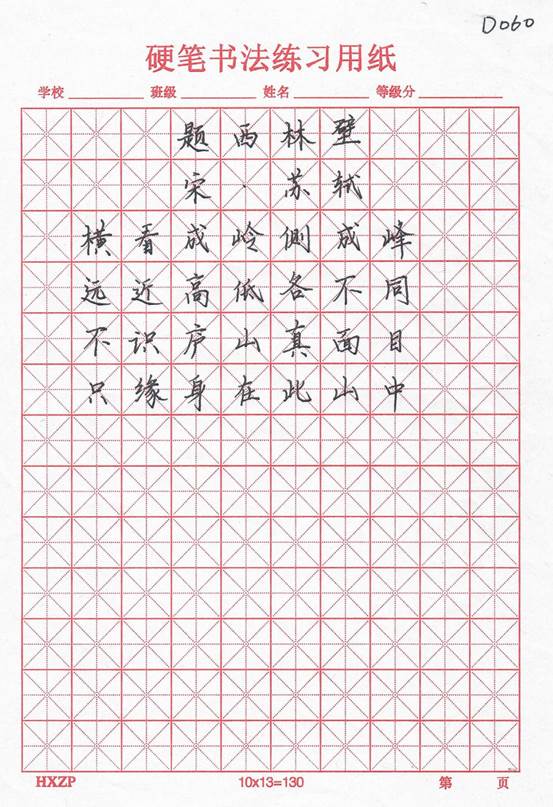 D060
硬笔书法练习用纸
学校 班级 姓名 等级分
题西林壁
宋·苏轼
横看成岭侧成峰
远近高低各不同
不识庐山真面目
只缘身在此山中
HXZP 10x13=130 第 页